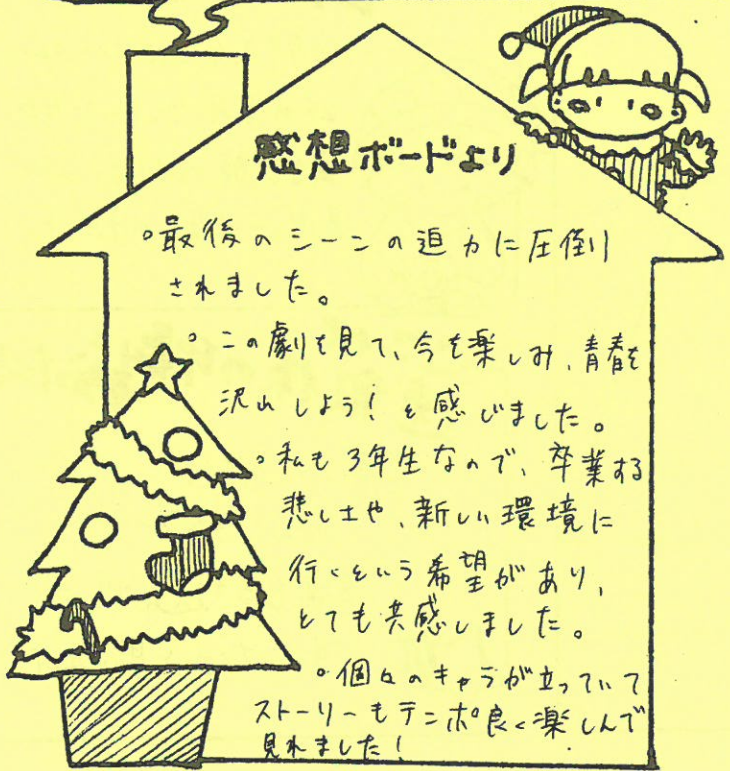 感想ボードより
°最後のシーンの迫力に圧倒
されました。
°この劇を見て、今を楽しみ、青春を
沢山しよう!と感じました。
°私も3年生なので、卒業する
悲しさや、新しい環境に
行くという希望があり、
とても共感しました。
°個々のキャラが立っていて
ストーリーもテンポ良く楽しんで
見れました!